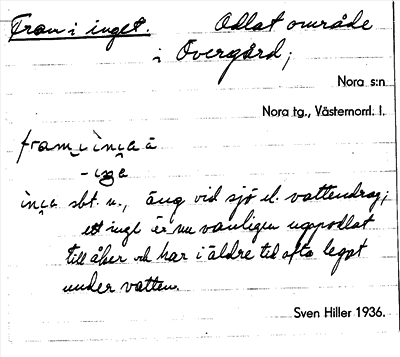 Fram i inget. Odlat område
i Övergård;
Nora s:n
Nora tg., Västernorrl. l.
fram i inga
inga sbt. n., äng vid sjö el. vattendrag;
ett inge är nu vanligen uppodlat
till åker och har i äldre tid ofta legat
under vatten.
Sven Hiller 1936.